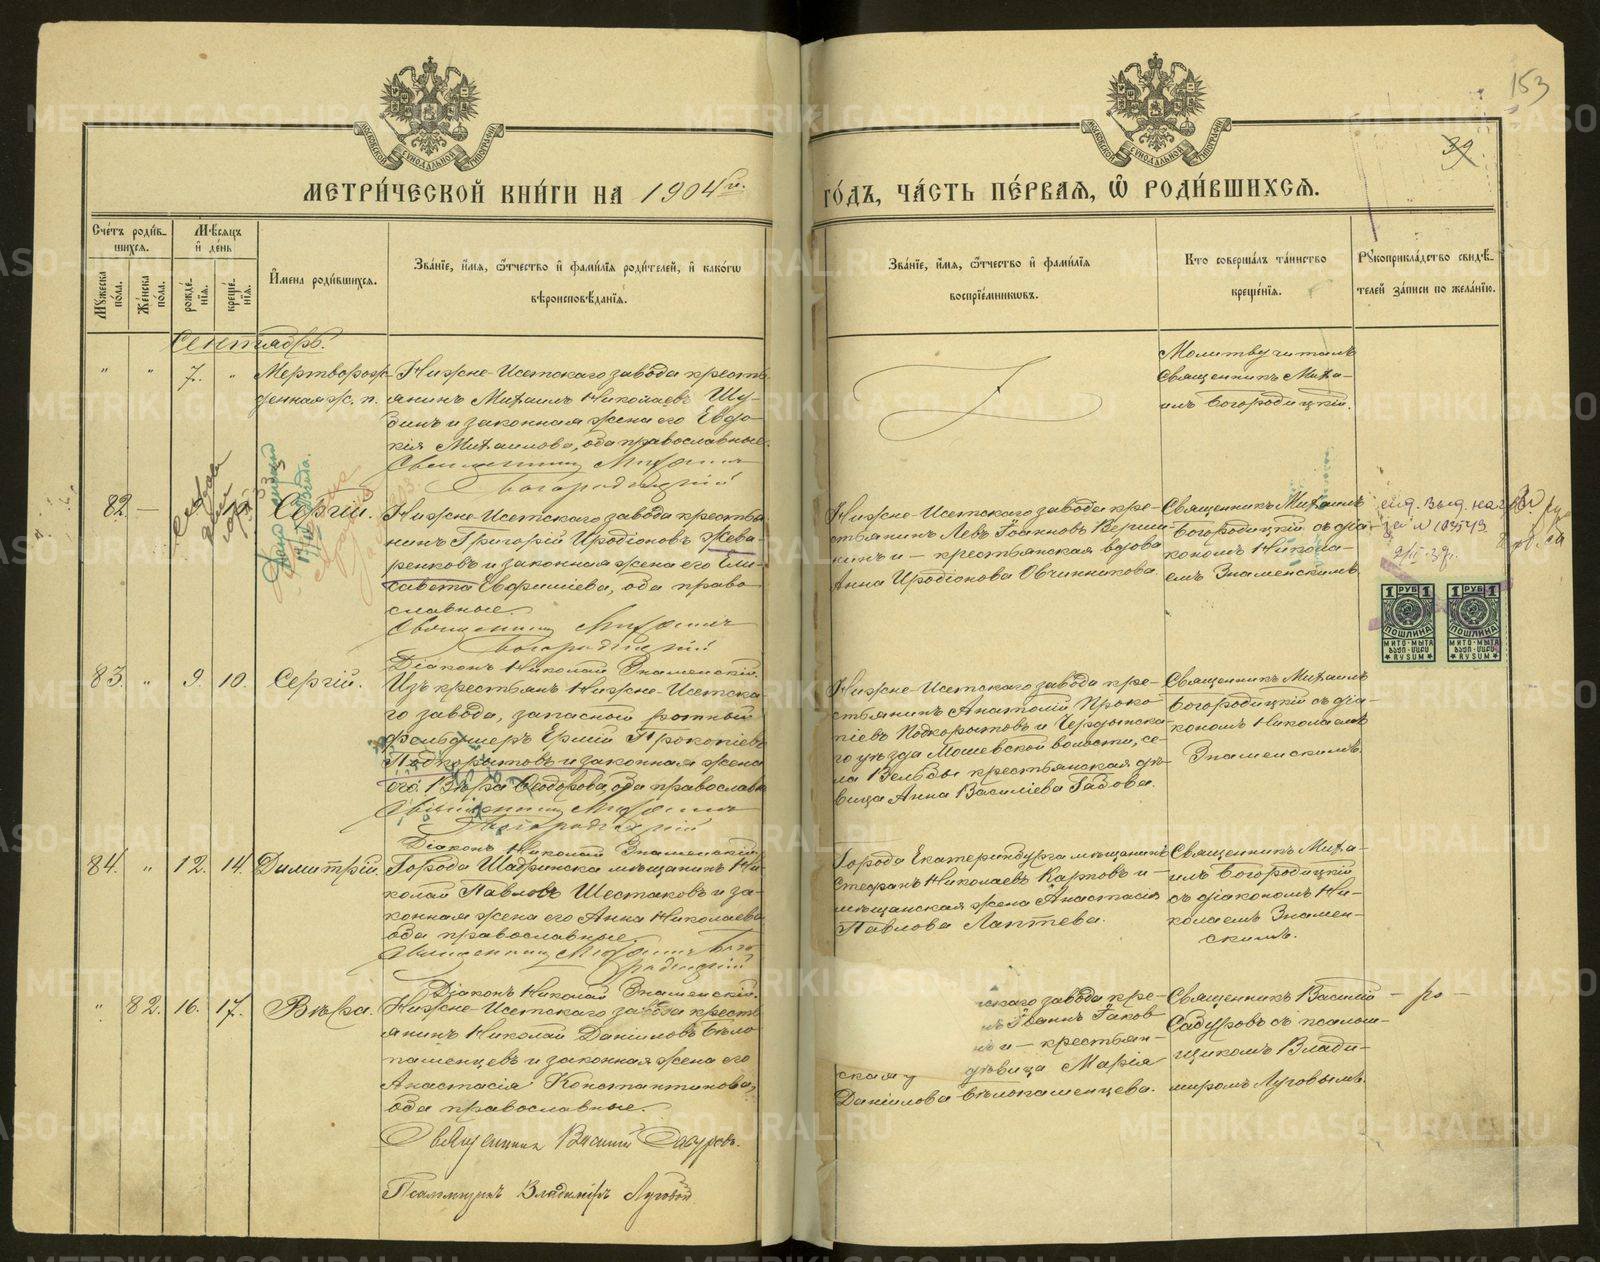 153
39
МЕТРИ́ЧЕСКОЙ КНИ́ГИ НА 1904 г.
ГО́ДЪ, ЧА́СТЬ ПЕ́РВАЯ, Ѿ РОДИ́ВШИХСЯ.
Сче́тъ роди́в-
шихся.
Мѣ́сяцъ
и҆ де́нь
Му́жеска
по́ла.
Же́нска
по́ла.
рожде́-
нїя.
креще́-
нїя.
И҆мена роди́вшихся.
Зва́нїе, и҆́мя, ѻ҆́тчество и҆ фами́лїя роди́телей, и҆ како́гѡ
вѣроисповѣ́данїя.
Зва́нїе, и҆́мя, ѻ҆́тчество и҆ фами́лїя
воспрїе́мникѡвъ.
Кто̀ соверша́лъ та́инство
креще́нїя.
Рꙋкоприкла́дство свидѣ́-
телей за́писи по жела́нїю.
Сентябрь.
" " 7. " Мертворож-
денная ж. п.
Нижне-Исетскаго завода кресть-
янинъ Михаилъ Николаевъ Шу-
бинъ и законная жена его Евдо-
кія Михаилова, оба православные.
Священникъ Михаилъ
Богородицкій
Молитву читалъ
Священникъ Миха-
илъ Богородицкій.
82 —
Сергій.
Нижне-Исетскаго завода крестья-
нинъ Григорій Иродіоновъ Жева-
ренковъ и законная жена его Ели-
савета Евфиміева, оба право-
славные.
Священникъ Михаилъ
Богородицкій
Діаконъ Николай Знаменскій.
Нижне-Исетскаго завода кре-
стьянинъ Левъ Іоанновъ Верши-
нинъ и — крестьянская вдова
Анна Иродіонова Овчинникова.
Священникъ Михаилъ
Богородицкій съ діа-
кономъ Никола-
емъ Знаменскимъ.
1 РУБ 1
ПОШЛИНА
МИТО-МЫТА
RVSUM
1 РУБ 1
ПОШЛИНА
МИТО-МЫТА
RVSUM
83. " 9. 10. Сергій.
Изъ крестьянъ Нижне-Исетска-
го завода, запасный ротный
фельдшеръ Ермій Прокопіевъ
Подкорытовъ и законная жена
его Вѣра Ѳеодорова, оба православн.
Священникъ Михаилъ
Богородицкій
Діаконъ Николай Знаменскій.
Нижне-Исетскаго завода кре-
стьянинъ Анатолій Проко-
піевъ Подкорытовъ и Чердынска-
го уѣзда Мошевской волости, се-
ла Вельвы крестьянская дѣ-
вица Анна Василіева Габова.
Священникъ Михаилъ
Богородицкій съ діа-
кономъ Николаемъ
Знаменскимъ.
84. " 12. 14. Димитрій.
Города Шадринска мѣщанинъ Ни-
колай Павловъ Шестаковъ и за-
конная жена его Анна Николаева,
оба православные.
Священникъ Михаилъ Бого-
родицкій
Діаконъ Николай Знаменскій.
Города Екатеринбурга мѣщанинъ
Стефанъ Николаевъ Карповъ и —
мѣщанская жена Анастасія
Павлова Лаптева.
Священникъ Миха-
илъ Богородицкій
съ діакономъ Ни-
колаемъ Знамен-
скимъ.
" 82. 16. 17. Вѣра.
Нижне-Исетскаго завода кресть-
янинъ Николай Даніиловъ Бѣло-
паменцевъ и законная жена его
Анастасія Константинова,
оба православные.
Священникъ Василій Садуровъ.
Псаломщикъ Владиміръ Луговой
скаго завода кре-
нъ Іванъ Іаков-
и — крестьян-
ская дѣвица Марія
Даніилова Бѣлопаменцева.
Священникъ Василій
Садуровъ съ псалом-
щикомъ Влади-
миромъ Луговымъ.